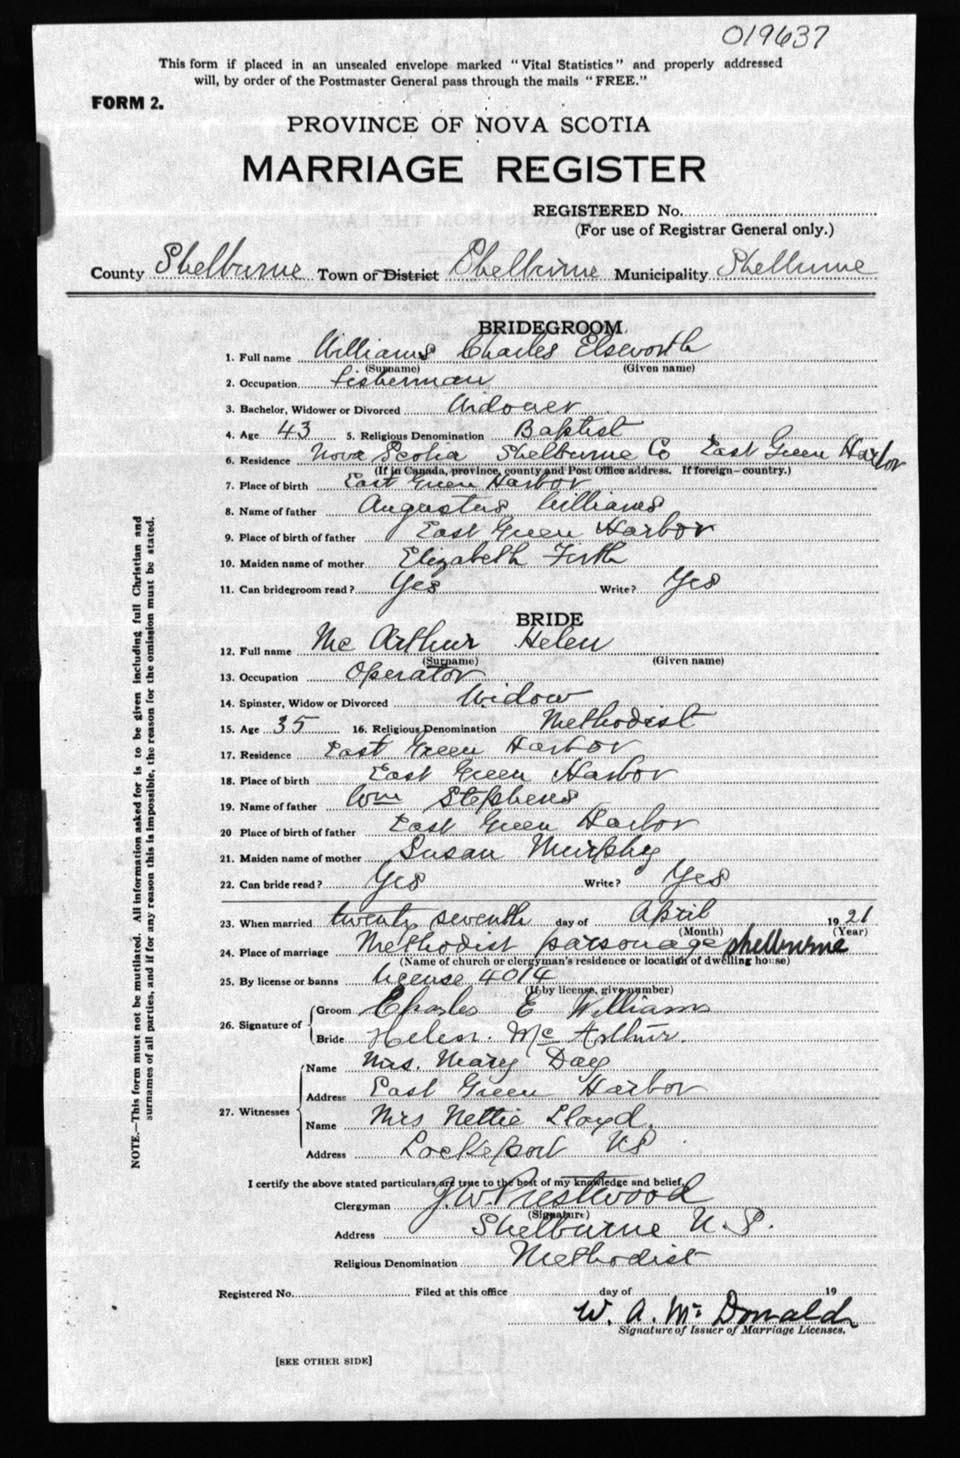 019637
This form if placed in an unsealed envelope marked "Vital Statistics" and properly addressed
will, by order of the Postmaster General pass through the mails "FREE."
FORM 2.
PROVINCE OF NOVA SCOTIA
MARRIAGE REGISTER
REGISTERED No.
(For use of Registrar General only.)
County Shelburne Town or District Shelburne Municipality Shelburne
BRIDEGROOM
1. Full name Williams Charles Elsworth
(Surname) (Given name)
2. Occupation Fisherman
3. Bachelor, Widower or Divorced Widower
4. Age 43 5. Religious Denomination Baptist
6. Residence Nova Scotia Shelburne Co East Green Harbor
(If in Canada, province, county and Post Office address. If foreign—country.)
7. Place of birth East Green Harbor
8. Name of father Augustus Williams
9. Place of birth of father East Green Harbor
10. Maiden name of mother Elizabeth Firth
11. Can bridegroom read? Yes Write? Yes
BRIDE
12. Full name Mc Arthur Helen
(Surname) (Given name)
13. Occupation Operator
14. Spinster, Widow or Divorced Widow
15. Age 35 16. Religious Denomination Methodist
17. Residence East Green Harbor
18. Place of birth East Green Harbor
19. Name of father Wm Stephens
20 Place of birth of father East Green Harbor
21. Maiden name of mother Susan Murphy
22. Can bride read? Yes Write? Yes
23. When married twenty seventh day of April 1921
(Month) (Year)
24. Place of marriage Methodist parsonage Shelburne
(Name of church or clergyman's residence or location of dwelling house)
25. By license or banns License 4014
(If by license, give number)
26. Signature of Groom Charles E Williams
Bride Helen. Mc Arthur.
27. Witnesses Name Mrs. Mary Day
Address East Green Harbor
Name Mrs Nettie Lloyd.
Address Lockeport NS
I certify the above stated particulars are true to the best of my knowledge and belief.
Clergyman J. W. Prestwood
(Signature)
Address Shelburne N. S.
Religious Denomination Methodist
Registered No. Filed at this office day of 19
W. A. Mc Donald
Signature of Issuer of Marriage Licenses.
[SEE OTHER SIDE]
NOTE.—This form must not be mutilated. All information asked for is to be given including full Christian and
surnames of all parties, and if for any reason this is impossible, the reason for the omission must be stated.